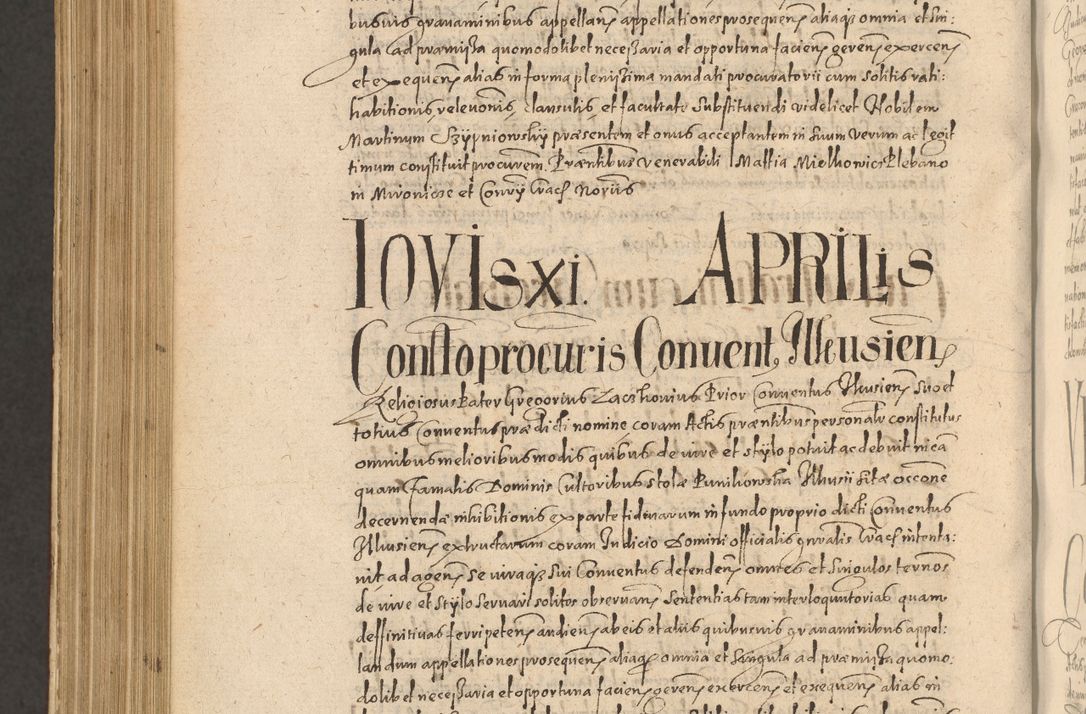 busuis gravaminibus appellan appellationes prosequen aliaq omnia et sin:
gula ad præmissa quomodolibet necessaria et opportuna facien geren exercen
et exequen alias in forma plenissima mandati procuratorii cum solitis rati:
habitionis, relevonis, clausulis, et facultate substituendi videlicet Nobilem
Martinum præsentem et onus acceptantem in suum verum ac legit
timum constituit procurem. Præntibus venerabili Mattia Mielkowicz Plebano
in Mironicze et Conrij Crac Noriis
IOVIS XI. APRILIS
Constto procuris Conuent Illkusien
Religiosus Pater Gregorius Prior Conuentus Ilkusien suo et
totius Conuentus prædicti nomine coram Actis præntibus personalr constitutus
omnibus melioribus modis quibus de iure et stÿlo potuit ac debuit in cã
quam Famatis Dominis Cultoribus Ilkusii sitæ occone
decernendæ inhibitionis ex parte in fundo proprio dicti Conuentus
Illkusien extructarum coram Iudicio Domini officialis gnralis Crac intenta:
uit, ad agen se iuraq sui Conuentus defenden omnes et singulos ternos
de iure et stÿlo seruari solitos obseruan sententias tam interloquutorias quam
deffinitiuas ferri peten audien ab eis et aliis quibusuis grauaminibus appel:
landum appellationes prosequen aliaq omnia et singula ad præmissa quomo:
dolibet necessaria et opportuna facien geren exercen et exequen alias in